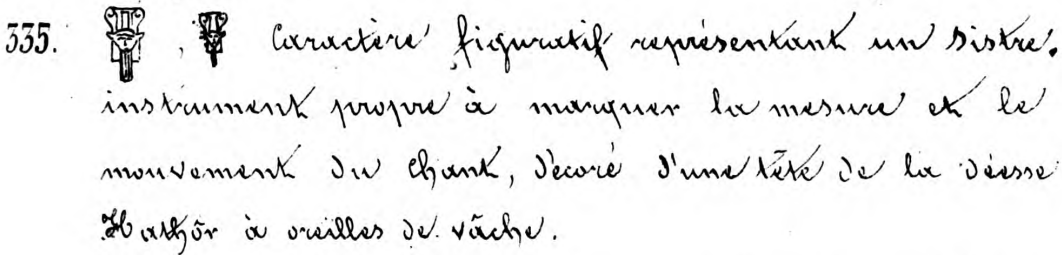 335. , Caractère figuratif représentant un Sistre,
instrument propre à marquer la mesure et le
mouvement du Chant, décoré d'une tête de la déesse
Hathôr à oreilles de vâche.